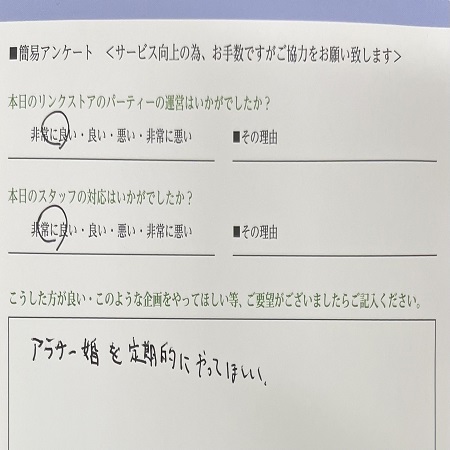 ■簡易アンケート　＜サービス向上の為、お手数ですがご協力をお願い致します＞
本日のリンクストアのパーティーの運営はいかがでしたか？
非常に良い・良い・悪い・非常に悪い　■その理由
本日のスタッフの対応はいかがでしたか？
非常に良い・良い・悪い・非常に悪い　■その理由
こうした方が良い・このような企画をやってほしい等、ご要望がございましたらご記入ください。
アラサー婚を定期的にやってほしい。